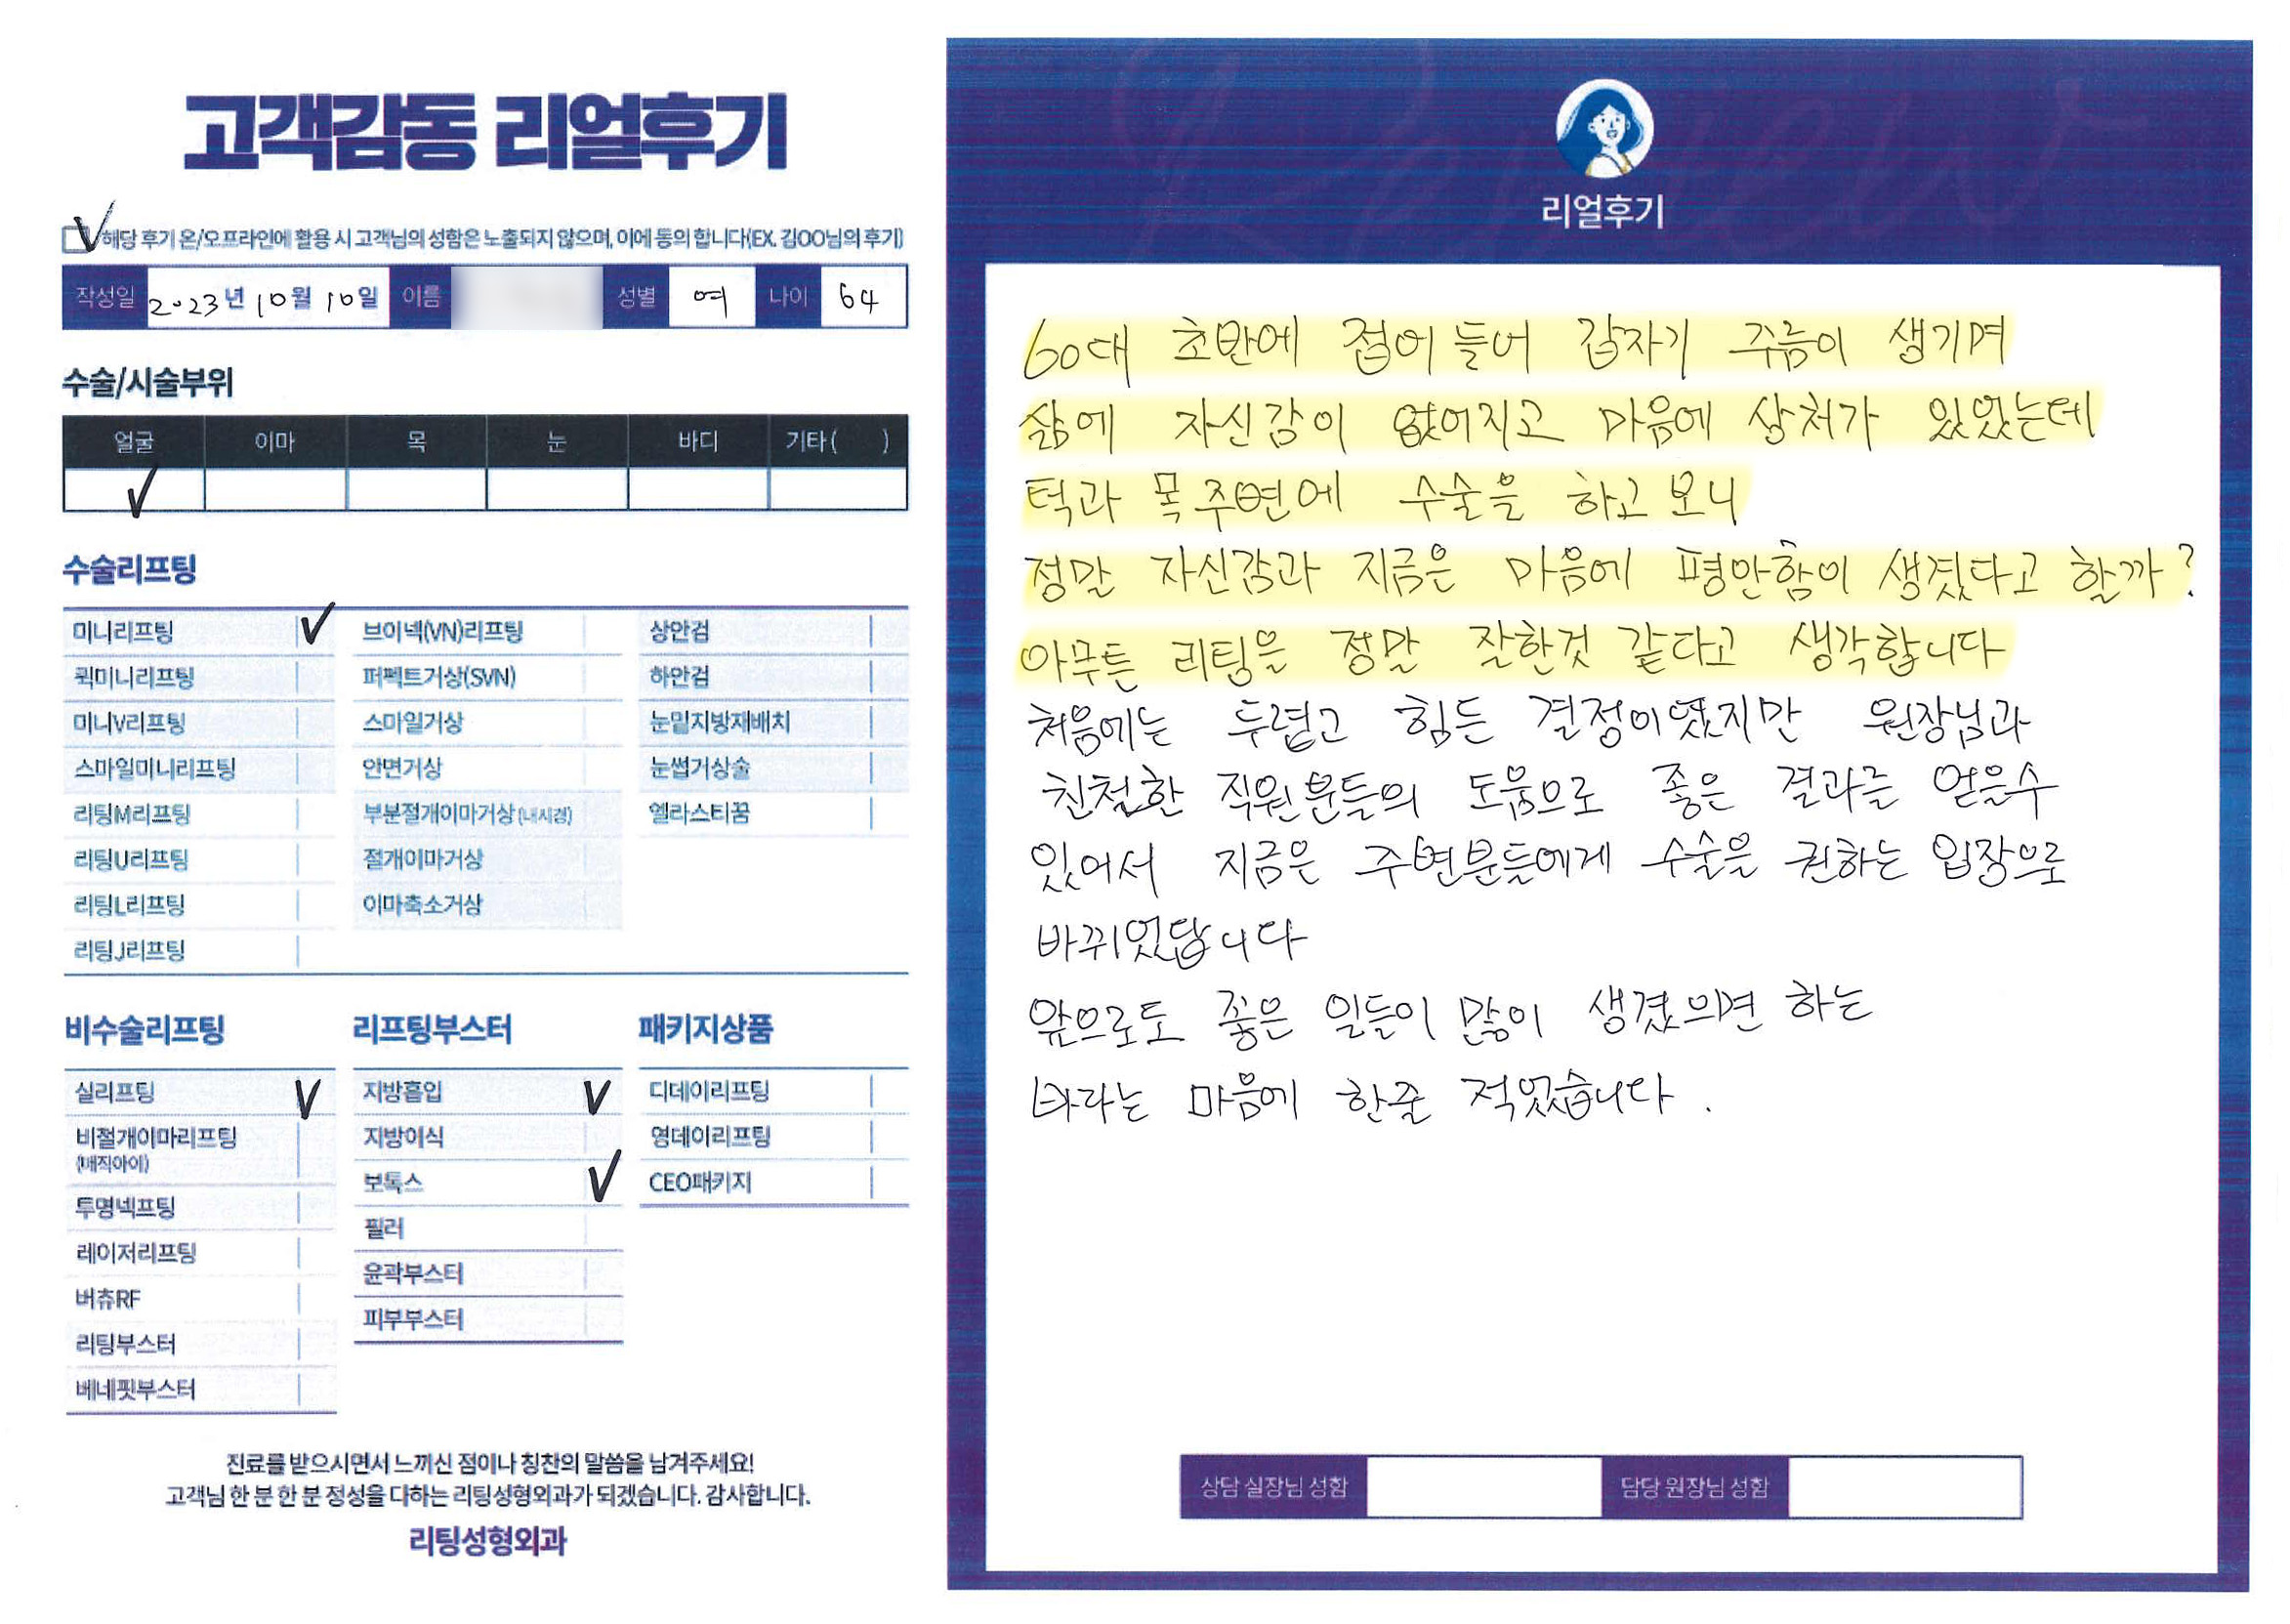 고객감동 리얼후기
해당 후기 온/오프라인에 활용 시 고객님의 성함은 노출되지 않으며, 이에 동의 합니다(EX. 김OO님의 후기)
작성일 2023년 10월 10일 이름 성별 여 나이 64
수술/시술부위
얼굴 이마 목 눈 바디 기타 ( )
수술리프팅
미니리프팅 브이넥(VN)리프팅 상안검
퀵미니리프팅 퍼펙트거상(SVN) 하안검
미니V리프팅 스마일거상 눈밑지방재배치
스마일미니리프팅 안면거상 눈썹거상술
리팅M리프팅 부분절개이마거상 (내시경) 엘라스티꿈
리팅U리프팅 절개이마거상
리팅L리프팅 이마축소거상
리팅J리프팅
비수술리프팅 리프팅부스터 패키지상품
실리프팅 지방흡입 디데이리프팅
비절개이마리프팅 지방이식 영데이리프팅
(매직아이)
투명넥프팅 보톡스 CEO패키지
레이저리프팅 필러
버츄RF 윤곽부스터
리팅부스터 피부부스터
베네핏부스터
진료를 받으시면서 느끼신 점이나 칭찬의 말씀을 남겨주세요!
고객님 한 분 한 분 정성을 다하는 리팅성형외과가 되겠습니다. 감사합니다.
리팅성형외과
Review
리얼후기
60대 초반에 접어들어 갑자기 주름이 생기며
삶에 자신감이 없어지고 마음에 상처가 있었는데
턱과 목주변에 수술을 하고보니
정말 자신감과 지금은 마음에 평안함이 생겼다고 할까?
아무튼 리팅을 정말 잘한것 같다고 생각합니다
처음에는 두렵고 힘든 결정이였지만 원장님과
친철한 직원분들의 도움으로 좋은 결과를 얻을수
있어서 지금은 주변분들에게 수술을 권하는 입장으로
바뀌었답니다
앞으로도 좋은 일들이 많이 생겼으면 하는
바라는 마음에 한줄 적었습니다.
상담 실장님 성함 담당 원장님 성함